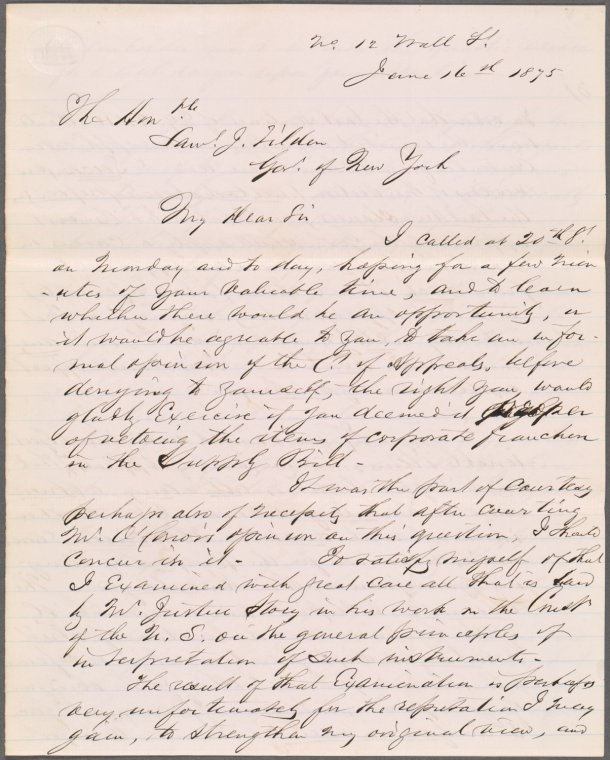 No. 12 Wall St.
June 16th 1875
The Honble
Saml. J. Tilden
Govr. of New York
My Dear Sir
I called at 20th St.
on Monday and to day, hoping for a few min
-utes of your valuable time, and to learn
whether there would be an opportunity, or
it would be agreable to you, to take an infor-
mal opinion of the C. of Appeals, before
denying to yourself, the right you would
gladly Exercise if you deemed it proper
of vetoing the items of corporate franchise
in the Supply Bill -
It was the part of Courtesy
perhaps also of necessity that after courting
Mr. O'Conor's opinion on this question, I should
concur in it - To satisfy myself of that
I Examined with great care all that is said
by Mr. Justice Story in his work on the Const.
of the U. S. on the general principles of
interpretation of such instruments -
The result of that Examination is perhaps
very unfortunately for the reputation I may
gain, to strengthen my original view, and